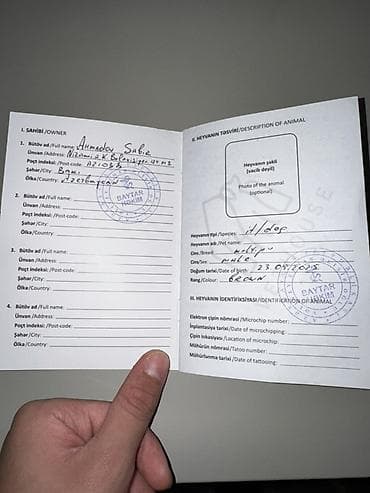 I. SAHİBİ /OWNER
1. Bütöv ad /Full name: Ahmadov Sabir
Ünvan /Address: Nizami
Poçt indeksi /Post-code:
Şəhər /City: Bakı
Ölkə /Country: Azerbaycan
2. Bütöv ad /Full name:
Ünvan /Address:
Poçt indeksi /Post-code:
Şəhər /City:
Ölkə /Country:
3. Bütöv ad /Full name:
Ünvan /Address:
Poçt indeksi /Post-code:
Şəhər /City:
Ölkə /Country:
4. Bütöv ad /Full name:
Ünvan /Address:
Poçt indeksi /Post-code:
Şəhər /City:
Ölkə /Country:
BAYTAR
HƏKİM
II. HEYVANIN TƏSVİRİ /DESCRIPTION OF ANIMAL
Heyvanın şəkli
(vacib deyil)
Photo of the animal
(optional)
Heyvanın növü /Species: it/dog
Heyvanın adı /Pet name:
Cins /Breed: maltipu
Cins /Sex: male
Doğum tarixi /Date of birth: 2025
Rəng /Colour: Brown
III. HEYVANIN İDENTİFİKSİYASI /IDENTIFICATION OF ANIMAL
Elektron çipin nömrəsi /Microchip number:
İmplantasiya tarixi /Date of microchipping:
Çipin lokasiyası /Location of microchip:
Möhürün nömrəsi /Tatoo number:
Möhürlənmə tarixi /Date of tattooing:
BAYTAR
HƏKİM